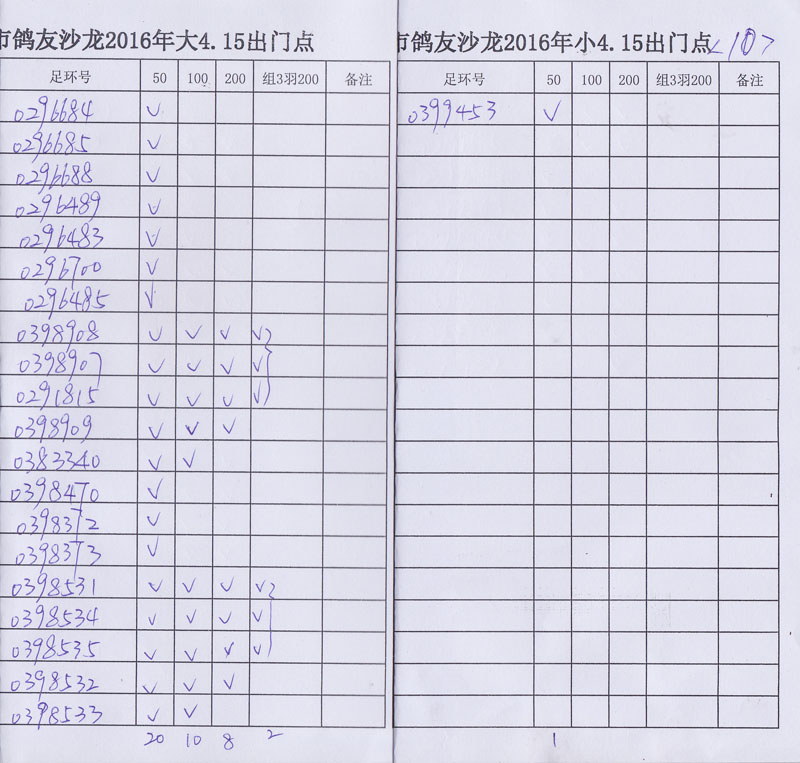 市鸽友沙龙2016年大4.15出门点
足环号 50 100 200 组3羽200 备注
0296684 ✓
0296685 ✓
0296688 ✓
0296489 ✓
0296483 ✓
0296700 ✓
0296485 ✓
0398908 ✓ ✓ ✓ ✓
0398907 ✓ ✓ ✓ ✓
0291815 ✓ ✓ ✓ ✓
0398909 ✓ ✓ ✓
0383340 ✓ ✓
0398470 ✓
0398372 ✓
0398373 ✓
0398531 ✓ ✓ ✓ ✓
0398534 ✓ ✓ ✓ ✓
0398535 ✓ ✓ ✓ ✓
0398532 ✓ ✓ ✓
0398533 ✓ ✓
20 10 8 2
市鸽友沙龙2016年小4.15出门点<10>
足环号 50 100 200 组3羽200 备注
0399453 ✓
1